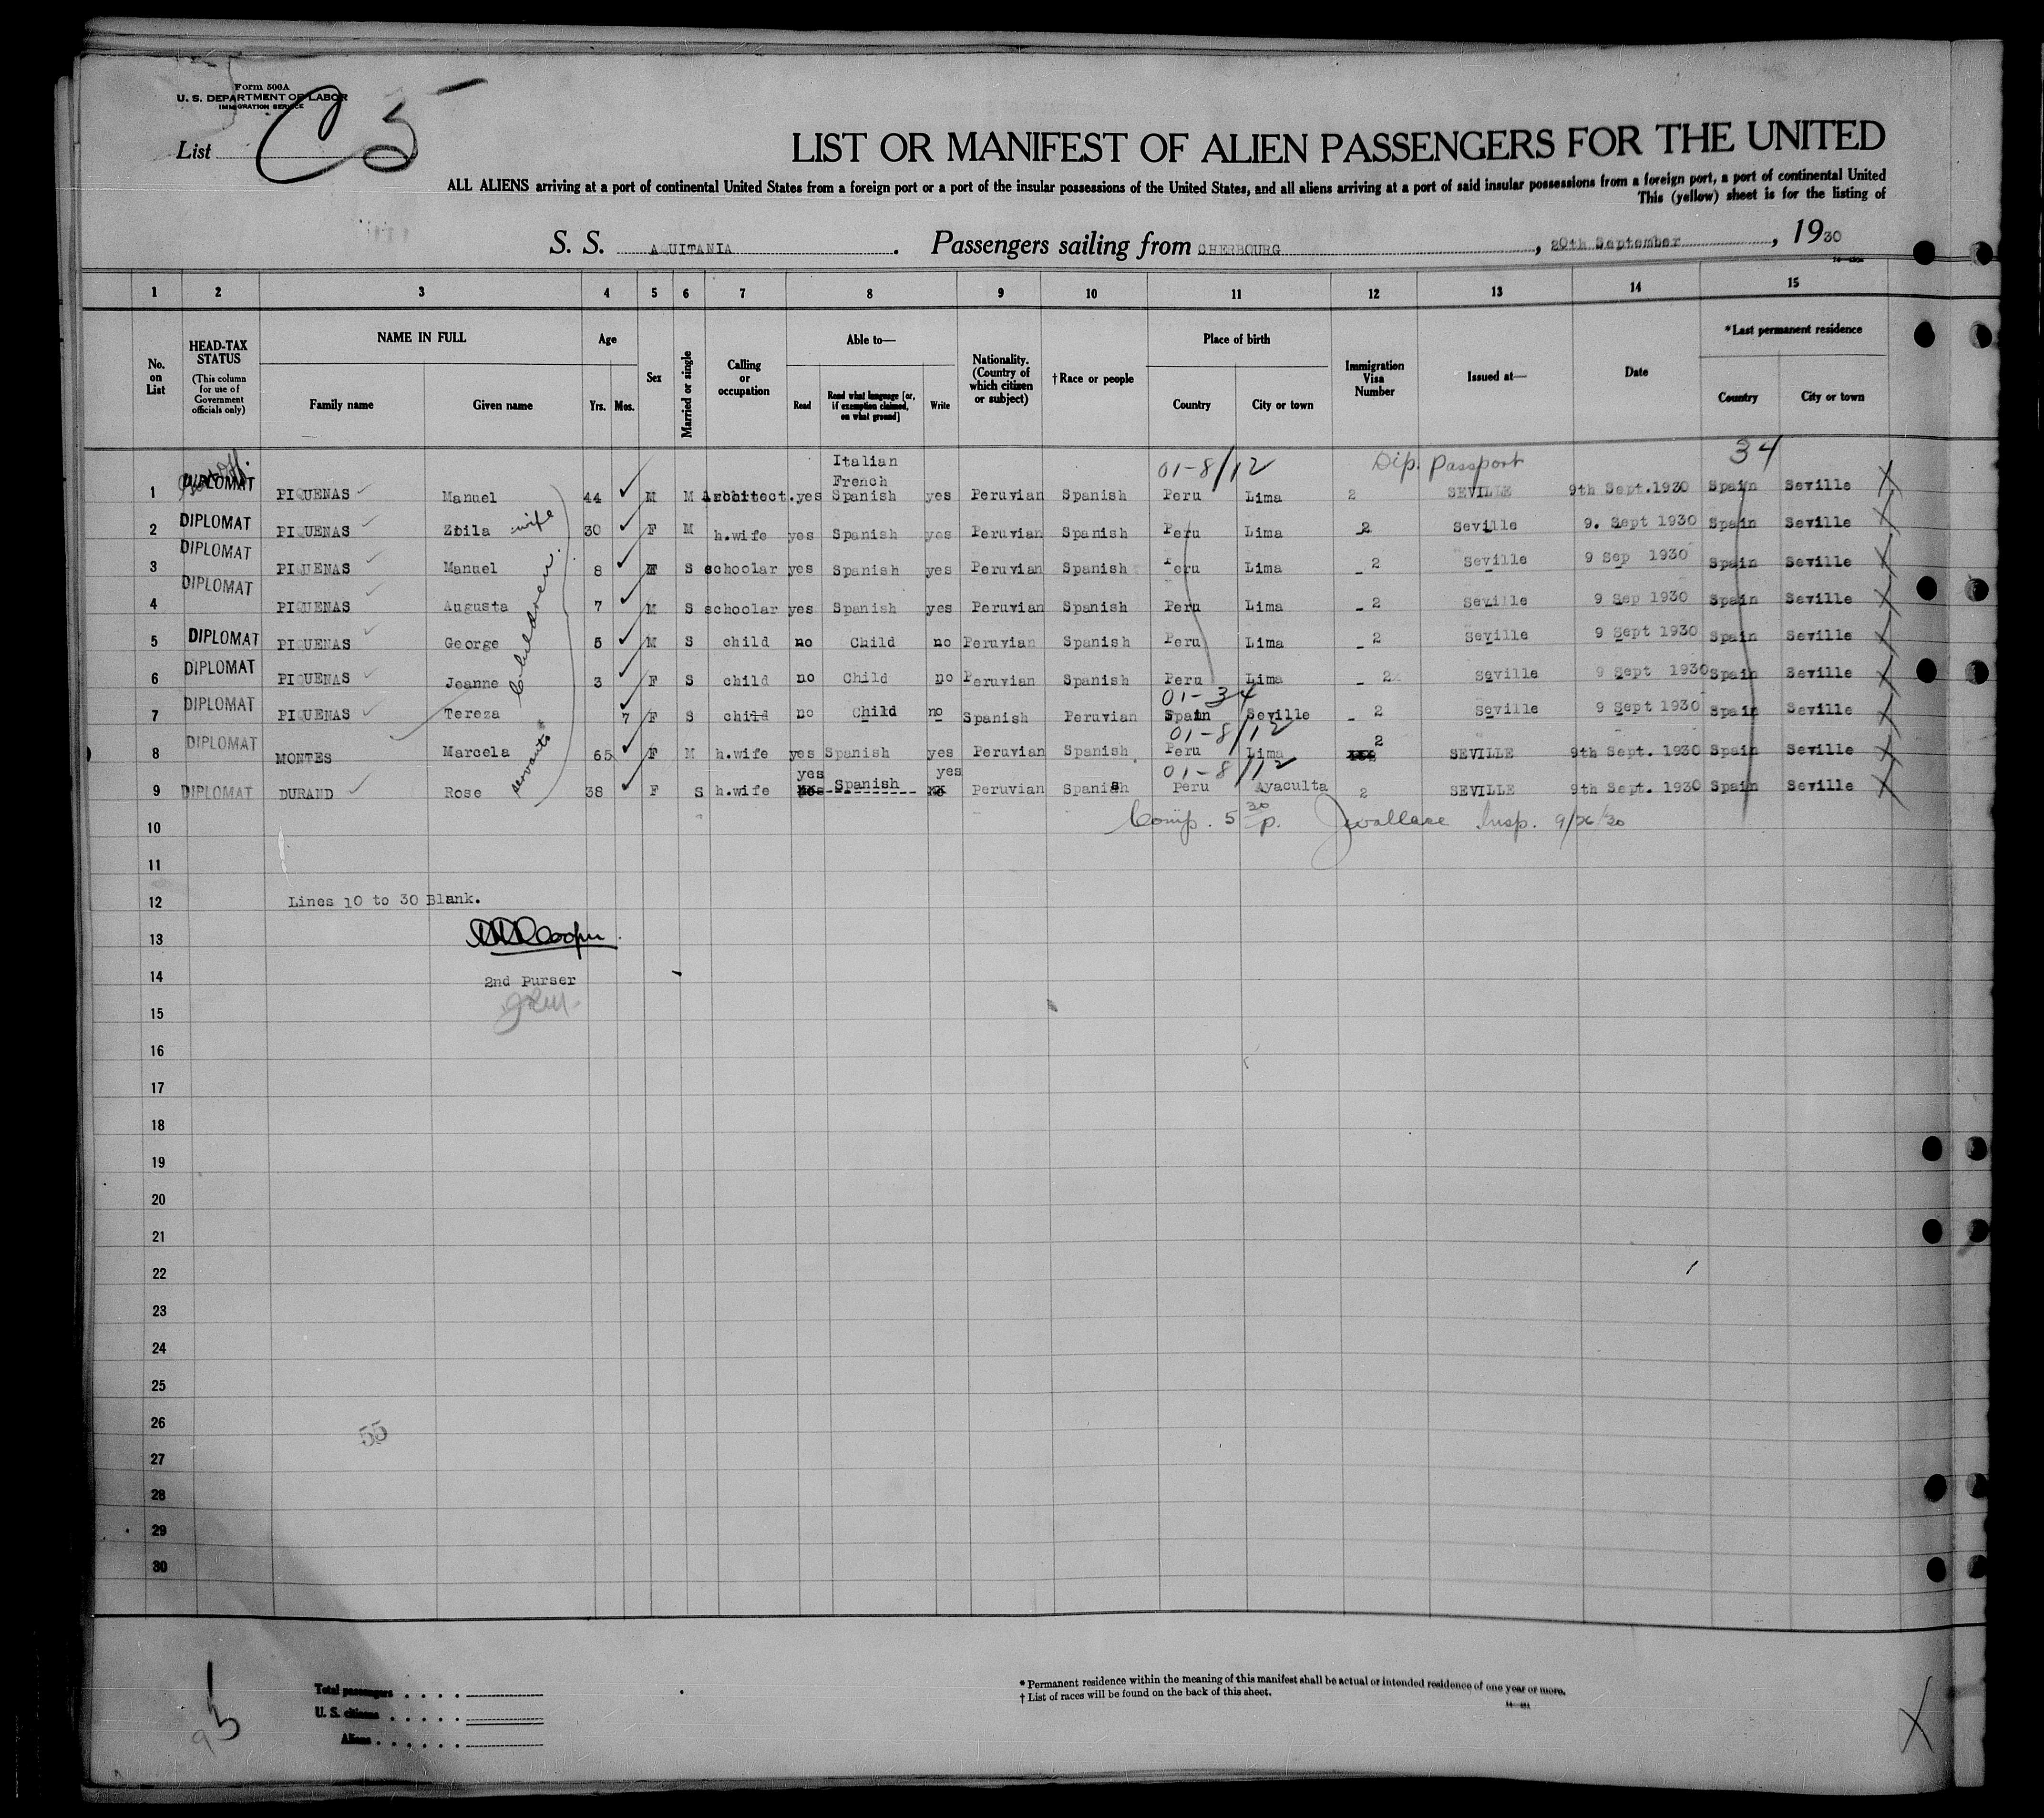 Form 500A
U. S. DEPARTMENT OF LABOR
IMMIGRATION SERVICE
List C 5
LIST OR MANIFEST OF ALIEN PASSENGERS FOR THE UNITED
ALL ALIENS arriving at a port of continental United States from a foreign port or a port of the insular possessions of the United States, and all aliens arriving at a port of said insular possessions from a foreign port, a port of continental United
This (yellow) sheet is for the listing of
S. S. AQUITANIA. Passengers sailing from CHERBOURG, 20th September, 1930
1 2 3 4 5 6 7 8 9 10 11 12 13 14 15
No. on List
HEAD-TAX STATUS
(This column for use of Government officials only)
NAME IN FULL
Family name Given name
Age
Yrs. Mos.
Sex
Married or single
Calling or occupation
Able to—
Read
Read what language [or, if exemption claimed, on what ground]
Write
Nationality. (Country of which citizen or subject)
†Race or people
Place of birth
Country City or town
Immigration Visa Number
Issued at—
Date
*Last permanent residence
Country City or town
01-8/12 Dip. Passport 34
Italian
French
1 DIPLOMAT PIQUENAS Manuel 44 M M Architect. yes Spanish yes Peruvian Spanish Peru Lima 2 SEVILLE 9th Sept.1930 Spain Seville X
2 DIPLOMAT PIQUENAS Zbila wife 30 F M h.wife yes Spanish yes Peruvian Spanish Peru Lima 2 Seville 9. Sept 1930 Spain Seville X
3 DIPLOMAT PIQUENAS Manuel 8 M S schoolar yes Spanish yes Peruvian Spanish Peru Lima 2 Seville 9 Sep 1930 Spain Seville X
4 DIPLOMAT PIQUENAS Augusta 7 M S schoolar yes Spanish yes Peruvian Spanish Peru Lima 2 Seville 9 Sep 1930 Spain Seville X
children
5 DIPLOMAT PIQUENAS George 5 M S child no Child no Peruvian Spanish Peru Lima 2 Seville 9 Sept 1930 Spain Seville X
6 DIPLOMAT PIQUENAS Jeanne 3 F S child no Child no Peruvian Spanish Peru Lima 2 Seville 9 Sept 1930 Spain Seville X
01-34
7 DIPLOMAT PIQUENAS Tereza 7 F S child no Child no Spanish Peruvian Spain Seville 2 Seville 9 Sept 1930 Spain Seville X
01-8/12
8 DIPLOMAT MONTES Marcela 65 F M h.wife yes Spanish yes Peruvian Spanish Peru Lima 2 SEVILLE 9th Sept. 1930 Spain Seville X
servants
01-8/12
9 DIPLOMAT DURAND Rose 38 F S h.wife yes Spanish yes Peruvian Spanish Peru Ayaculta 2 SEVILLE 9th Sept. 1930 Spain Seville X
10 Comp. 5 30 p. J Wallace Insp. 9/26/30
11
12 Lines 10 to 30 Blank.
13 Cooper
14 2nd Purser
15
16
17
18
19
20
21
22
23
24
25
26 55
27
28
29
30
Total passengers
U. S. citizens
Aliens
* Permanent residence within the meaning of this manifest shall be actual or intended residence of one year or more.
† List of races will be found on the back of this sheet.
X